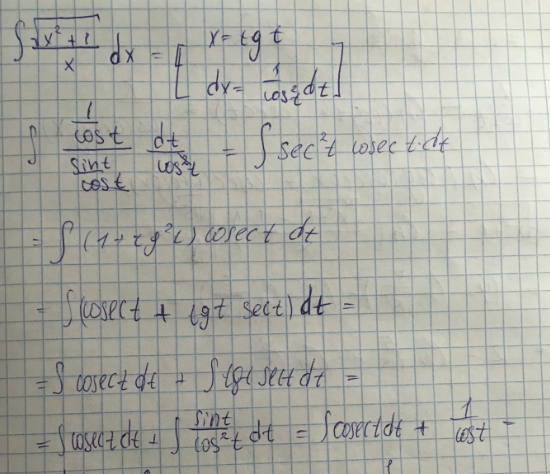 ∫ √(x² + 1) / x dx = [ x = tg t
dx = 1/cos²t dt ]
∫ (1/cos t) / (sin t/cos t) dt/cos²t = ∫ sec²t cosec t · dt
= ∫ (1 + tg²t) cosec t dt
= ∫ (cosec t + tg t sec t) dt =
= ∫ cosec t dt + ∫ tg t sec t dt =
= ∫ cosec t dt + ∫ sin t/cos²t dt = ∫ cosec t dt + 1/cos t -